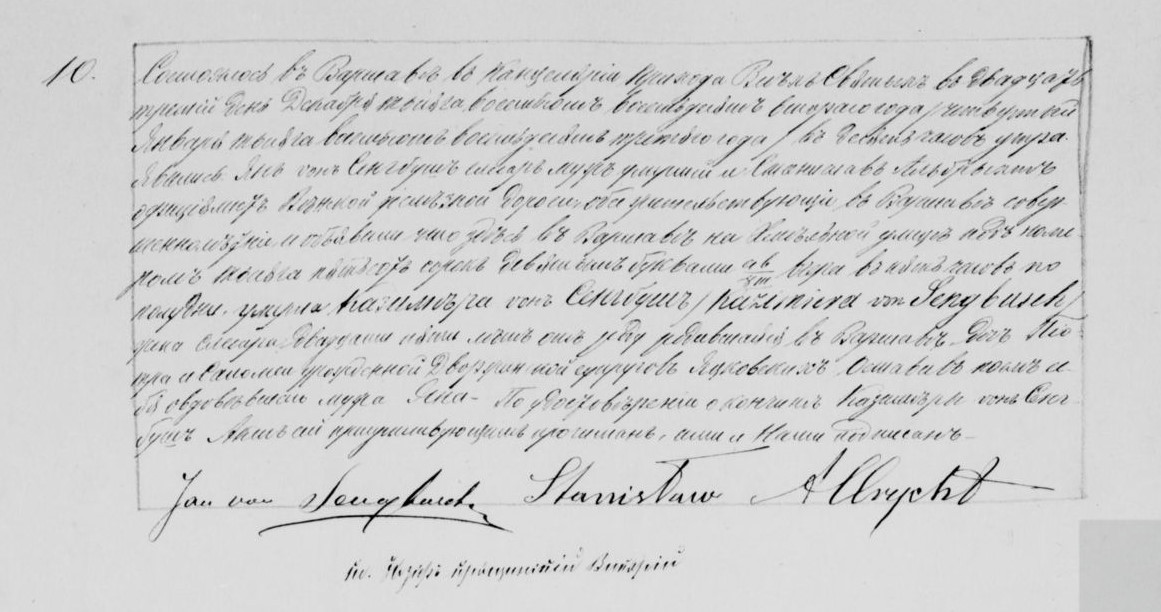 10.
Состоялось въ Варшавѣ въ Канцеляріи Прихода Всѣхъ Святыхъ въ двадцать
третій день Декабря тысяча восемьсотъ восемьдесятъ втораго года /четвертый
Января тысяча восемьсотъ восемьдесятъ третьяго года/ въ десять часовъ утра.
Явились Янъ фонъ Сенгбушъ слесарь мужъ умершей и Станиславъ Альбрыхтъ
Вѣнской желѣзной дороги, жительствующіе въ Варшавѣ совер-
шеннолѣтніе и объявили что здѣсь въ Варшавѣ на Хмѣльной улицѣ подъ номе-
ромъ тысяча пятьсотъ сорокъ девять буквами вчера въ часовъ по
полудни, умерла Казимѣра фонъ Сенгбушъ /Kazimiera von Sengbusch/
жена слесаря двадцати пяти лѣтъ отъ роду въ Варшавѣ дочь Пе-
тра и Саломеи супруговъ Оставивъ послѣ се-
бя овдовѣвшаго мужа Яна - По удостовѣреніи о кончинѣ Казимѣры фонъ Сенг-
бушъ Актъ сей присутствующимъ прочитанъ, ими и Нами подписанъ -
Jan von Sengbusch Stanisław Albrycht